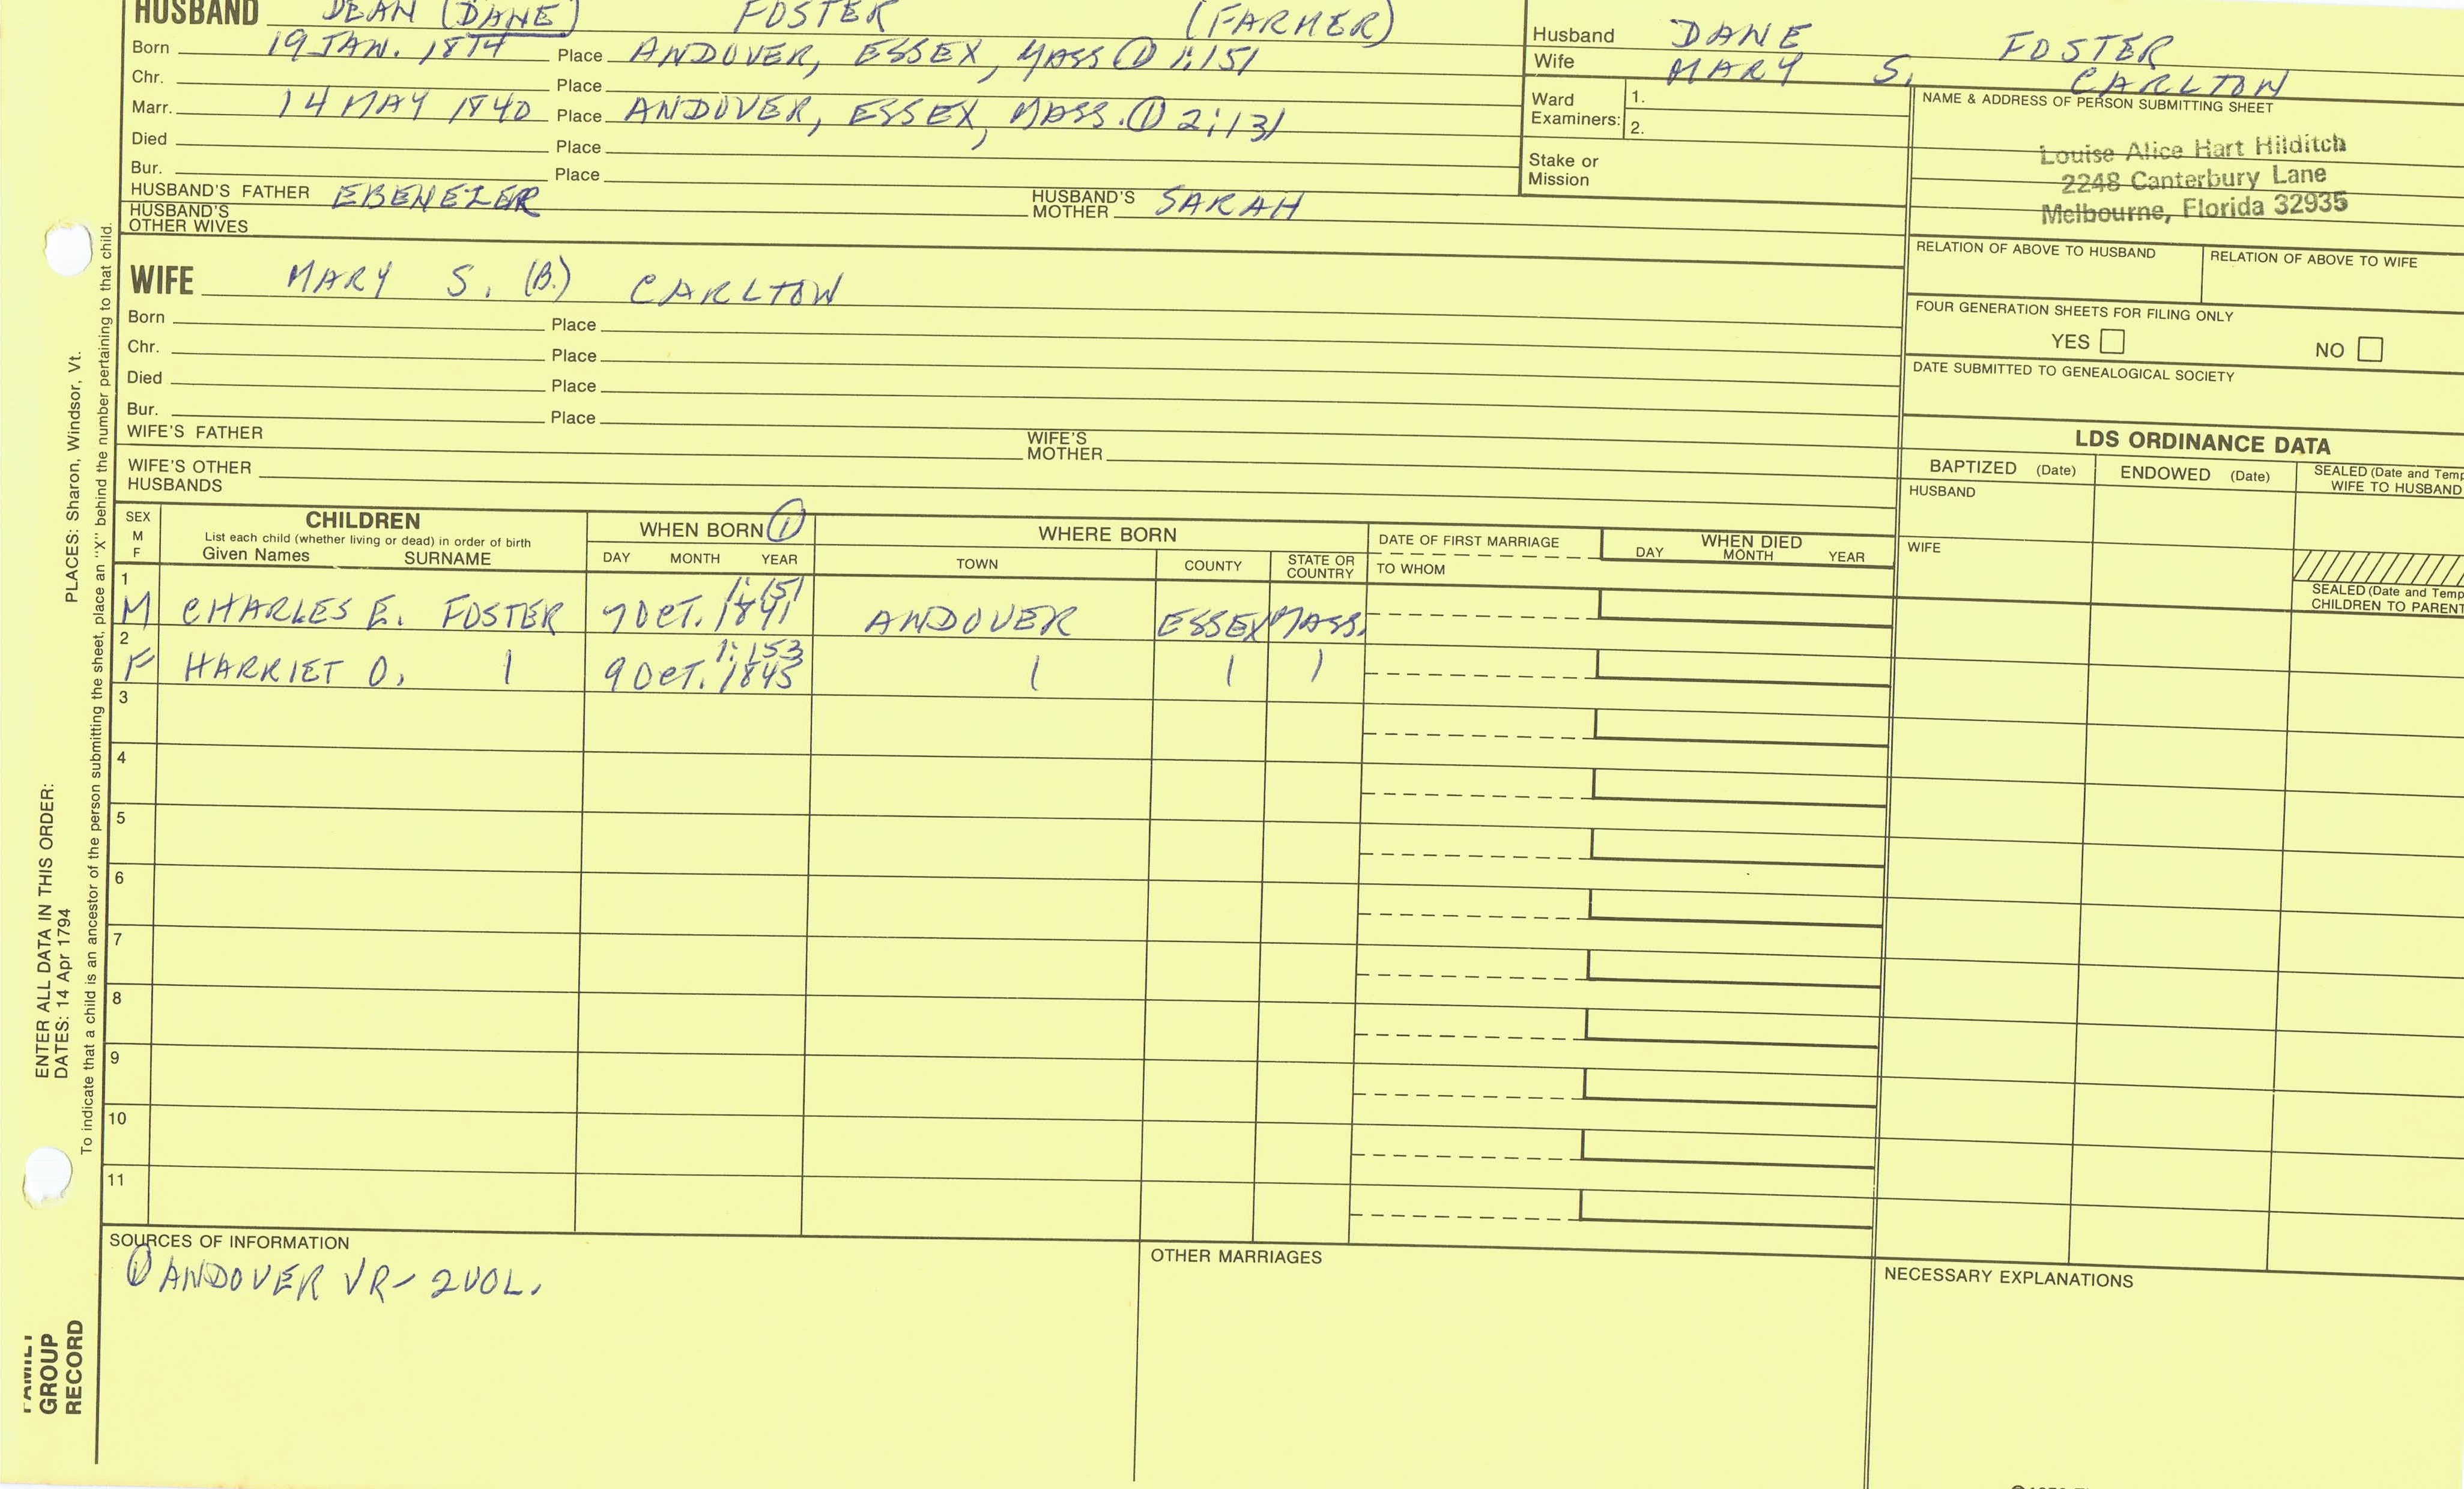 HUSBAND DEAN (DANE) FOSTER (FARMER)
Born 19 JAN. 1814 Place ANDOVER, ESSEX, MASS ① 1:151
Chr. Place
Marr. 14 MAY 1840 Place ANDOVER, ESSEX, MASS. ① 2:131
Died Place
Bur. Place
HUSBAND'S FATHER EBENEZER HUSBAND'S MOTHER SARAH
HUSBAND'S OTHER WIVES
Husband DANE FOSTER
Wife MARY S. CARLTON
Ward Examiners: 1.
2.
Stake or Mission
NAME & ADDRESS OF PERSON SUBMITTING SHEET
Louise Alice Hart Hilditch
2248 Canterbury Lane
Melbourne, Florida 32935
RELATION OF ABOVE TO HUSBAND RELATION OF ABOVE TO WIFE
FOUR GENERATION SHEETS FOR FILING ONLY
YES NO
DATE SUBMITTED TO GENEALOGICAL SOCIETY
WIFE MARY S. (B.) CARLTON
Born Place
Chr. Place
Died Place
Bur. Place
WIFE'S FATHER WIFE'S MOTHER
WIFE'S OTHER HUSBANDS
LDS ORDINANCE DATA
BAPTIZED (Date) ENDOWED (Date) SEALED (Date and Temp
WIFE TO HUSBAND
HUSBAND
WIFE
SEALED (Date and Temp
CHILDREN TO PARENT
SEX M F
CHILDREN
List each child (whether living or dead) in order of birth
Given Names SURNAME
WHEN BORN ①
DAY MONTH YEAR
WHERE BORN
TOWN COUNTY STATE OR COUNTRY
DATE OF FIRST MARRIAGE
TO WHOM
WHEN DIED
DAY MONTH YEAR
1:151
1 M CHARLES E. FOSTER 7 OCT. 1841 ANDOVER ESSEX MASS.
1:153
2 F HARRIET O. | 9 OCT. 1845 | | |
3
4
5
6
7
8
9
10
11
SOURCES OF INFORMATION
① ANDOVER VR - 2 VOL.
OTHER MARRIAGES
NECESSARY EXPLANATIONS
PLACES: Sharon, Windsor, Vt.
ENTER ALL DATA IN THIS ORDER:
DATES: 14 Apr 1794
To indicate that a child is an ancestor of the person submitting the sheet, place an "X" behind the number pertaining to that child.
FAMILY
GROUP
RECORD